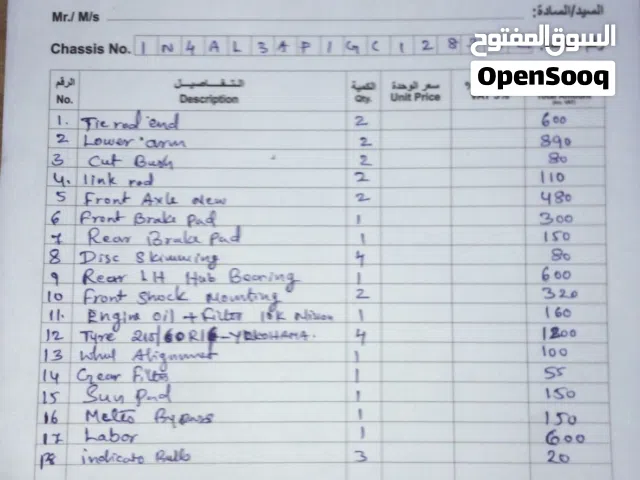 Mr./ M/s
السيد/السادة:
Chassis No. 1 N 4 A L 3 A P 1 G C 1 2 8
السوق المفتوح
OpenSooq
الرقم التفاصيل الكمية سعر الوحدة
No. Description Qty. Unit Price VAT 5%
1. Tie rod end 2 600
2 Lower arm 2 890
3 Cut Bush 2 80
4. link rod 2 110
5 Front Axle New 2 480
6 Front Brake Pad 1 300
7 Rear Brake Pad 1 150
8 Disc Skimming 4 80
9 Rear LH Hub Bearing 1 600
10 Front Shock Mounting 2 320
11. Engine Oil + Filter 10K 1 160
12 Tyre 215/60R16-YOKOHAMA. 4 1200
13 Whul Alignment 1 100
14 Gear Filter 1 55
15 Sun Pad 1 150
16 Meter Bypass 1 150
17 Labor 1 600
18 indicato Bulb 3 20